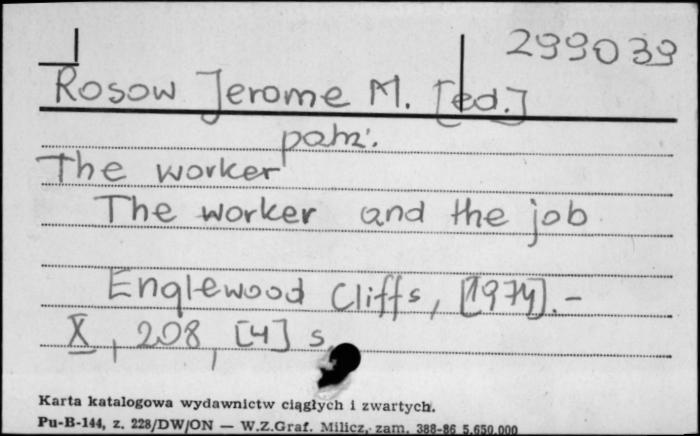 299039
Rosow Jerome M. [ed.]
patrz:
The worker
The worker and the job
Englewood Cliffs, [1974]. -
X, 208, [4] s
Karta katalogowa wydawnictw ciągłych i zwartych.
Pu-B-144, z. 228/DW/ON — W.Z.Graf. Milicz, zam. 388-86 5.650.000